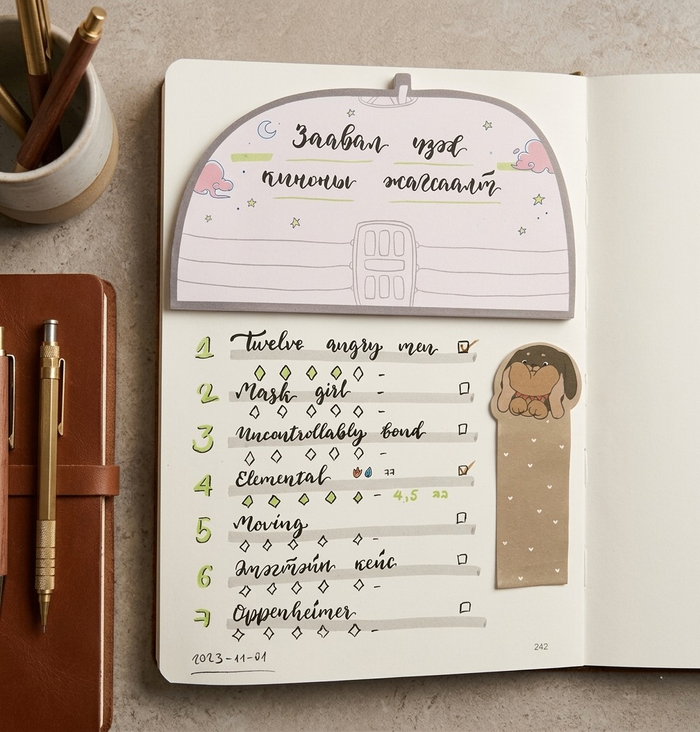 Заавал үзэх
киноны жагсаалт
1 Twelve angry men
2 Mask girl
3 Uncontrollably bond
4 Elemental
4,5
5 Moving
6 Эмэгтэйн кейс
7 Oppenheimer
2023-11-01
242